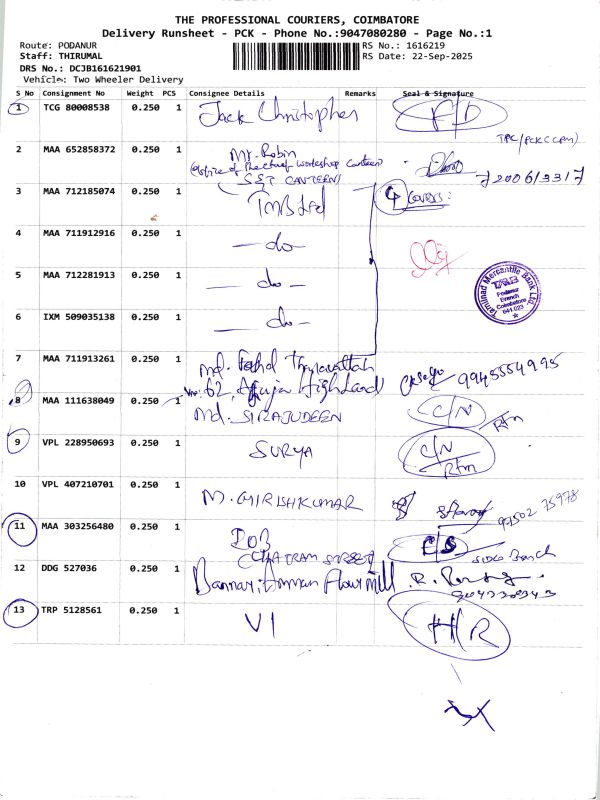 THE PROFESSIONAL COURIERS, COIMBATORE
Delivery Runsheet - PCK - Phone No.:9047080280 - Page No.:1
Route: PODANUR
RS No.: 1616219
Staff: THIRUMAL
RS Date: 22-Sep-2025
DRS No.: DCJB161621901
Vehicle: Two Wheeler Delivery
S No Consignment No Weight PCS Consignee Details Remarks Seal & Signature
1 TCG 80008538 0.250 1 Jack Christopher F/D
2 MAA 652858372 0.250 1 Mr. Robin
(Office of the chief workshop canteen
S&T CANTEEN)
3 MAA 712185074 0.250 1 TMB Ltd 4 Covers:
4 MAA 711912916 0.250 1 — do —
5 MAA 712281913 0.250 1 — do —
Tamilnad Mercantile Bank Ltd.
TMB
Podanur
Branch
Coimbatore
641 023
6 IXM 509035138 0.250 1 — do —
7 MAA 711913261 0.250 1 Md. 9945554995
62, HighLand
8 MAA 111638049 0.250 1 Md. SIRAJUDEEN C/N
Rtn
9 VPL 228950693 0.250 1 SURYA C/N
Rtn
10 VPL 407210701 0.250 1 M. GIRISHKUMAR 97502 75978
11 MAA 303256480 0.250 1 IOB
CHATRAM STREET
Branch
12 DDG 527036 0.250 1 Bannari Amman Flour Mill
13 TRP 5128561 0.250 1 VI H/R